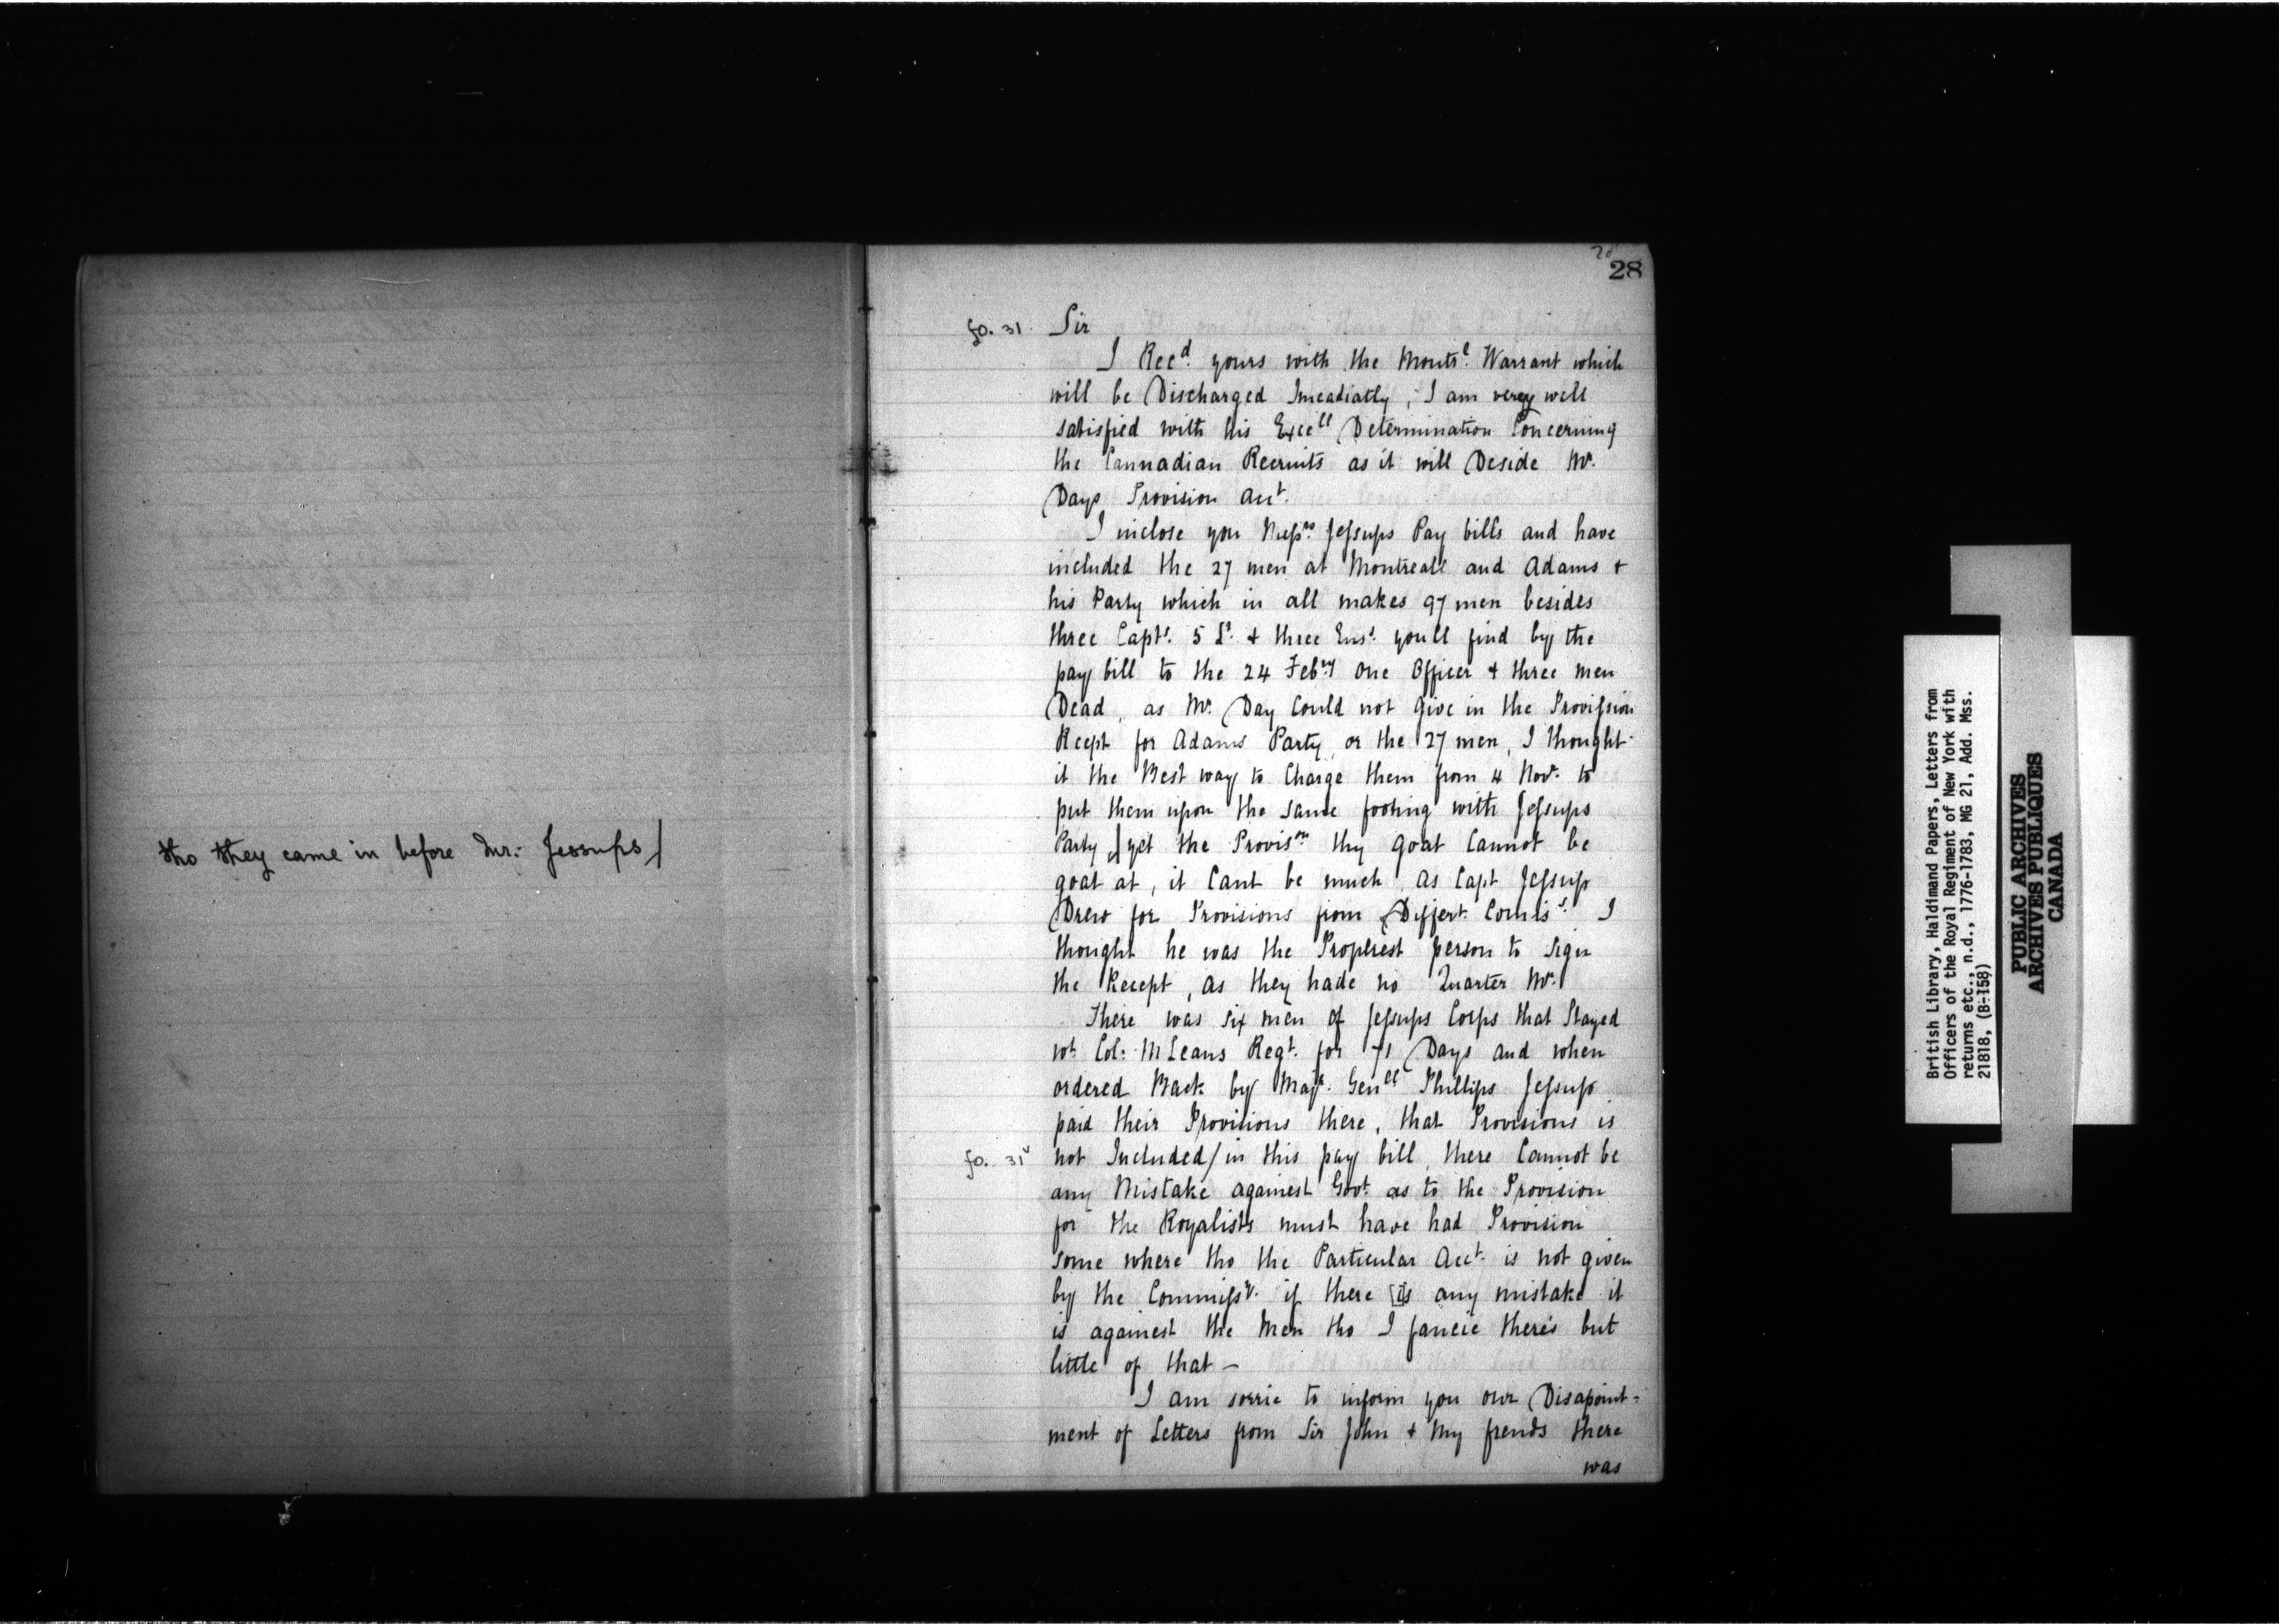 tho they came in before Mr. Jessups/
28
fo. 31 Sir
I Recd. yours with the Montl. Warrant which
will be Discharged Imeadiatly, I am verey well
satisfied with his Excell Determination Concerning
the Cannadian Recruits as it will Deside Mr.
Days Provision Acct.
I inclose you Messrs. Jessups Pay bills and have
included the 27 men at Montreall and Adams +
his Party which in all makes 97 men besides
three Capts. 5 Lts. + three Ens. youll find by the
pay bill to the 24 Febry One Officer + three men
Dead, as Mr. Day Could not give in the Provission
Recpt for Adams Party or the 27 men, I thought
it the Best way to Charge them from 4 Novr. to
put them upon the same footing with Jessups
Party / yet the Provisn they goat Cannot be
goat at, it Cant be much as Capt Jessup
Drew for Provisions from Differt. Comiss. I
thought he was the Properest person to sign
the Recept, as they hade no Quarter Mr.
There was six men of Jessups Corps that Stayed
wt. Col: McLeans Regt. for 71 Days and when
ordered Back by Majr. Genll Phillips Jessup
paid their Provitions there, that Provisions is
fo. 31v not Included/in this pay bill, there Cannot be
any Mistake against Govt. as to the Provision
for the Royalists must have had Provision
some where tho the Particular Acct. is not given
by the Commissy. if there is any mistake it
is against the Men tho I fancie theres but
little of that –
I am sorrie to inform you our Disapoint-
ment of Letters from Sir John + My frends there
was
British Library, Haldimand Papers, Letters from
Officers of the Royal Regiment of New York with
returns etc., n.d., 1776-1783, MG 21, Add. Mss.
21818, (B-158)
PUBLIC ARCHIVES
ARCHIVES PUBLIQUES
CANADA